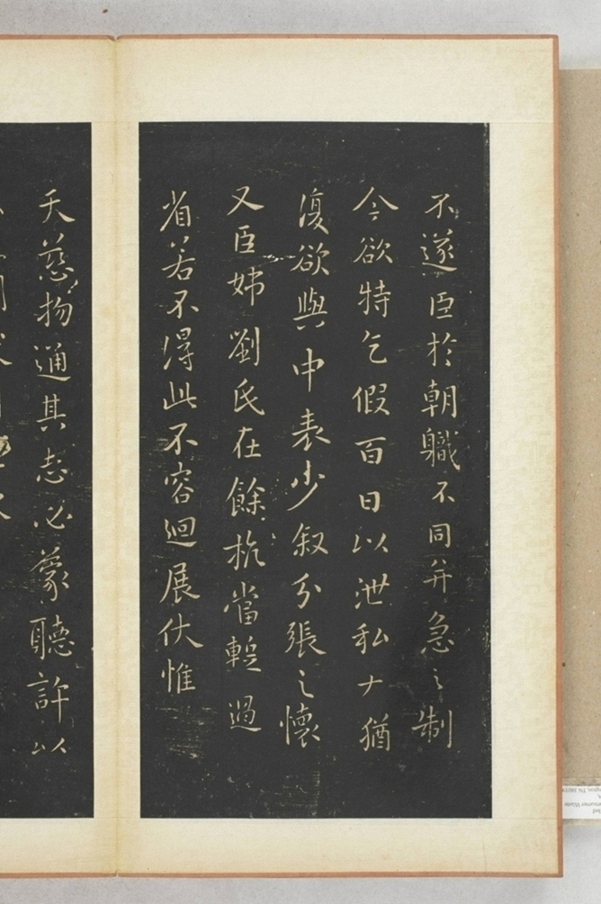 不遂臣於朝軄不同并急之制
今欲特乞假百日以泄私猶
復欲與中表少叙分張之懷
又臣姊劉氏在餘杭當蹔過
省若不得此不容迴展伏惟
天慈物通其志必蒙聽許以